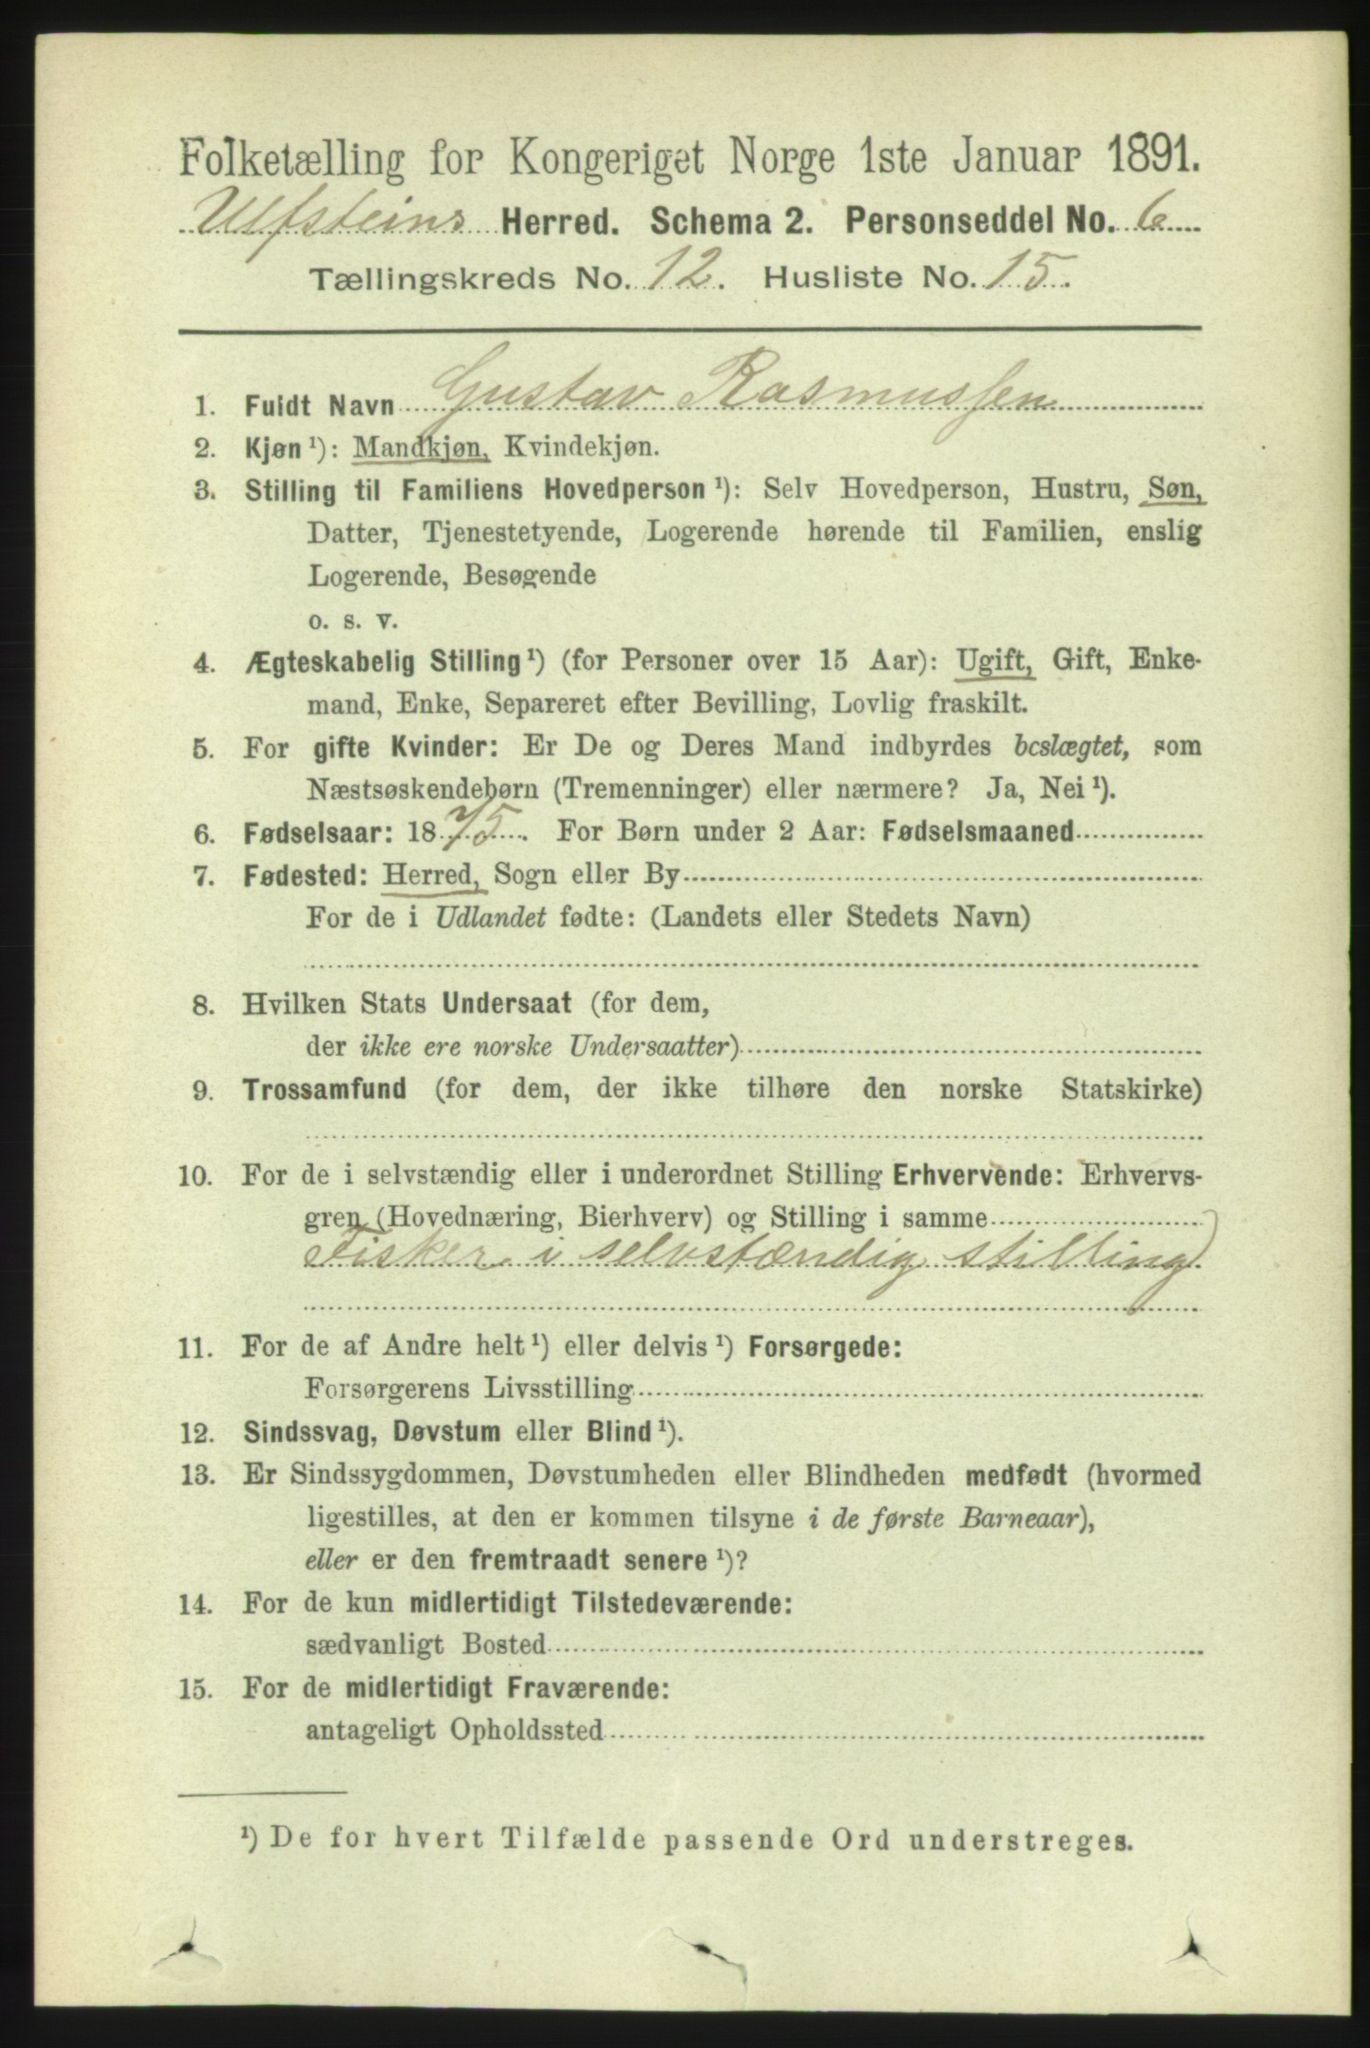 Folketælling for Kongeriget Norge 1ste Januar 1891.
Ulfsteins Herred. Schema 2. Personseddel No. 6
Tællingskreds No. 12. Husliste No. 15.
1. Fuldt Navn Gustav Rasmussen
2. Kjøn ¹): Mandkjøn, Kvindekjøn.
3. Stilling til Familiens Hovedperson ¹): Selv Hovedperson, Hustru, Søn,
Datter, Tjenestetyende, Logerende hørende til Familien, enslig
Logerende, Besøgende
o. s. v.
4. Ægteskabelig Stilling ¹) (for Personer over 15 Aar): Ugift, Gift, Enke-
mand, Enke, Separeret efter Bevilling, Lovlig fraskilt.
5. For gifte Kvinder: Er De og Deres Mand indbyrdes beslægtet, som
Næstsøskendebørn (Tremenninger) eller nærmere? Ja, Nei ¹).
6. Fødselsaar: 1875. For Børn under 2 Aar: Fødselsmaaned
7. Fødested: Herred, Sogn eller By
For de i Udlandet fødte: (Landets eller Stedets Navn)
8. Hvilken Stats Undersaat (for dem,
der ikke ere norske Undersaatter)
9. Trossamfund (for dem, der ikke tilhøre den norske Statskirke)
10. For de i selvstændig eller i underordnet Stilling Erhvervende: Erhvervs-
gren (Hovednæring, Bierhverv) og Stilling i samme
Fisker i selvstændig stilling
11. For de af Andre helt ¹) eller delvis ¹) Forsørgede:
Forsørgerens Livsstilling
12. Sindssvag, Døvstum eller Blind ¹).
13. Er Sindssygdommen, Døvstumheden eller Blindheden medfødt (hvormed
ligestilles, at den er kommen tilsyne i de første Barneaar),
eller er den fremtraadt senere ¹)?
14. For de kun midlertidigt Tilstedeværende:
sædvanligt Bosted
15. For de midlertidigt Fraværende:
antageligt Opholdssted
¹) De for hvert Tilfælde passende Ord understreges.